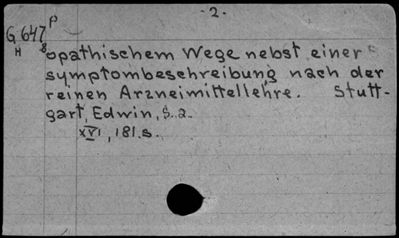 - 2. -
G 647 P
H 8
opathischem Wege nebst einer
symptombeschreibung nach der
reinen Arzneimittellehre. Stutt-
gart, Edwin, S. a.
XVI, 181 s.